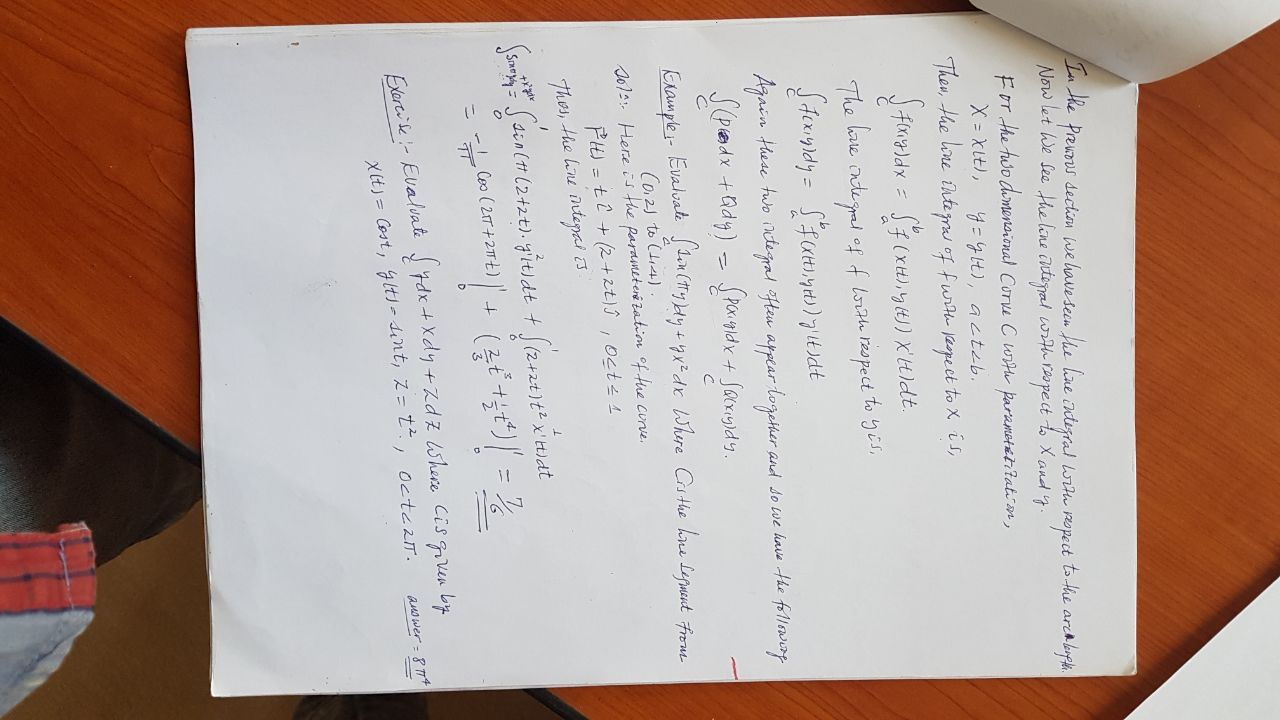 In the previous section we have seen the line integral with respect to the arc length.
Now let we see the line integral with respect to x and y.
For the two dimensional Curve C with parametrization,
x = x(t), y = y(t), a<t<b.
Then, the line integral of f with respect to x is,
∫_C f(x,y)dx = ∫_a^b f(x(t),y(t)) x'(t)dt.
The line integral of f with respect to y is,
∫_C f(x,y)dy = ∫_a^b f(x(t),y(t)) y'(t)dt
Again these two integral often appear together and so we have the following
∫_C (Pdx + Qdy) = ∫_C P(x,y)dx + ∫_C Q(x,y)dy.
Example:- Evaluate ∫_C sin(πy)dy + yx²dx where C is the line segment from
(0,2) to (1,4).
Soln: Here is the parameterization of the curve.
r(t) = t i + (2+2t) j, 0≤t≤1
Then, the line integral is
∫_C sin(πy)dy + yx²dx = ∫_0^1 sin(π(2+2t)). y'(t)dt + ∫_0^1 (2+2t)t² x'(t)dt
= -1/π Cos(2π+2πt)|_0^1 + (2/3 t³ + 1/2 t⁴)|_0^1 = 7/6
Exercise:- Evaluate ∫_C ydx + xdy + zdz where C is given by
x(t) = Cost, y(t) = sint, z = t², 0<t<2π. answer = 8π⁴